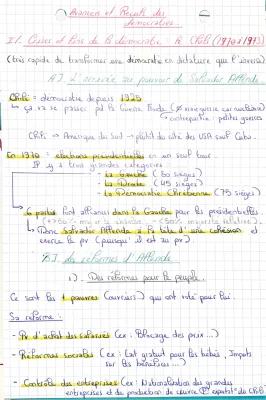 Avancées et Reculs des
démocraties.
I/. Crises et fin de la démocratie. Le Chili (1970 à 1973)
(très rapide de transformer une démocratie en dictature que l'inverse)
A] L'arrivée au pouvoir de Salvador Allende.
Chili = démocratie depuis 1925
↳ ça va se passer pdt la Guerre Froide
↳ contrepartie : petites guerres
Chili ⇒ Amérique du Sud → plutôt du côté des USA sauf Cuba.
En 1970 = élections présidentielles en un seul tour.
Il y a trois grandes catégories :
- La Gauche (80 sièges)
- La Droite (45 sièges)
- La Démocratie Chrétienne (75 sièges)
6 partis font alliance dans la Gauche pour les présidentielles.
↳ Donc Salvador Allende à la tête d'une cohésion et
exerce le pv (puisqu'il est au pv).
B] Les réformes d'Allende
1). Des réformes pour le peuple.
Ce sont les + pauvres (ouvriers) qui ont voté pour lui.
Sa réforme :
- Pv d'achat des salariés (ex : Blocage des prix ...)
- Réformes sociales (ex : Lait gratuit pour les bébés, Impôts
sur les bénéfices ...)
- Contrôle des entreprises (ex : Nationalisation des grandes
entreprises et du production de cuivre